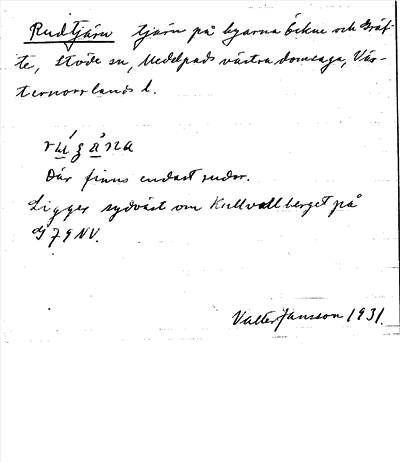 Rudtjärn tjärn på byarna Öckne och Gräf-
te, Stöde sn, Medelpads västra domsaga, Väs-
ternorrlands l.
Där finns endast rudor.
Ligger sydväst om Kullvallberget på
G 79 NV.
Valter Jansson 1931.